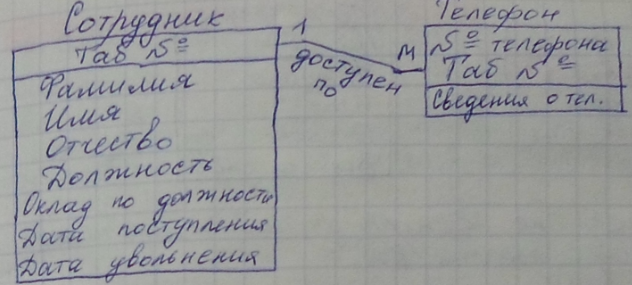 Сотрудник
Таб №
Фамилия
Имя
Отчество
Должность
Оклад по должности
Дата поступления
Дата увольнения
1
доступен
по
М
Телефон
№ телефона
Таб №
Сведения о тел.